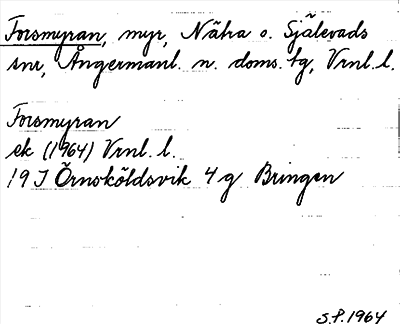 Forsmyran, myr, Nätra o. Själevads
snr, Ångermanl. n. doms.tg, Vrnl. l.
Forsmyran
ek (1964) Vrnl. l.
19 J Örnsköldsvik 4 g Bringen
S.P. 1964